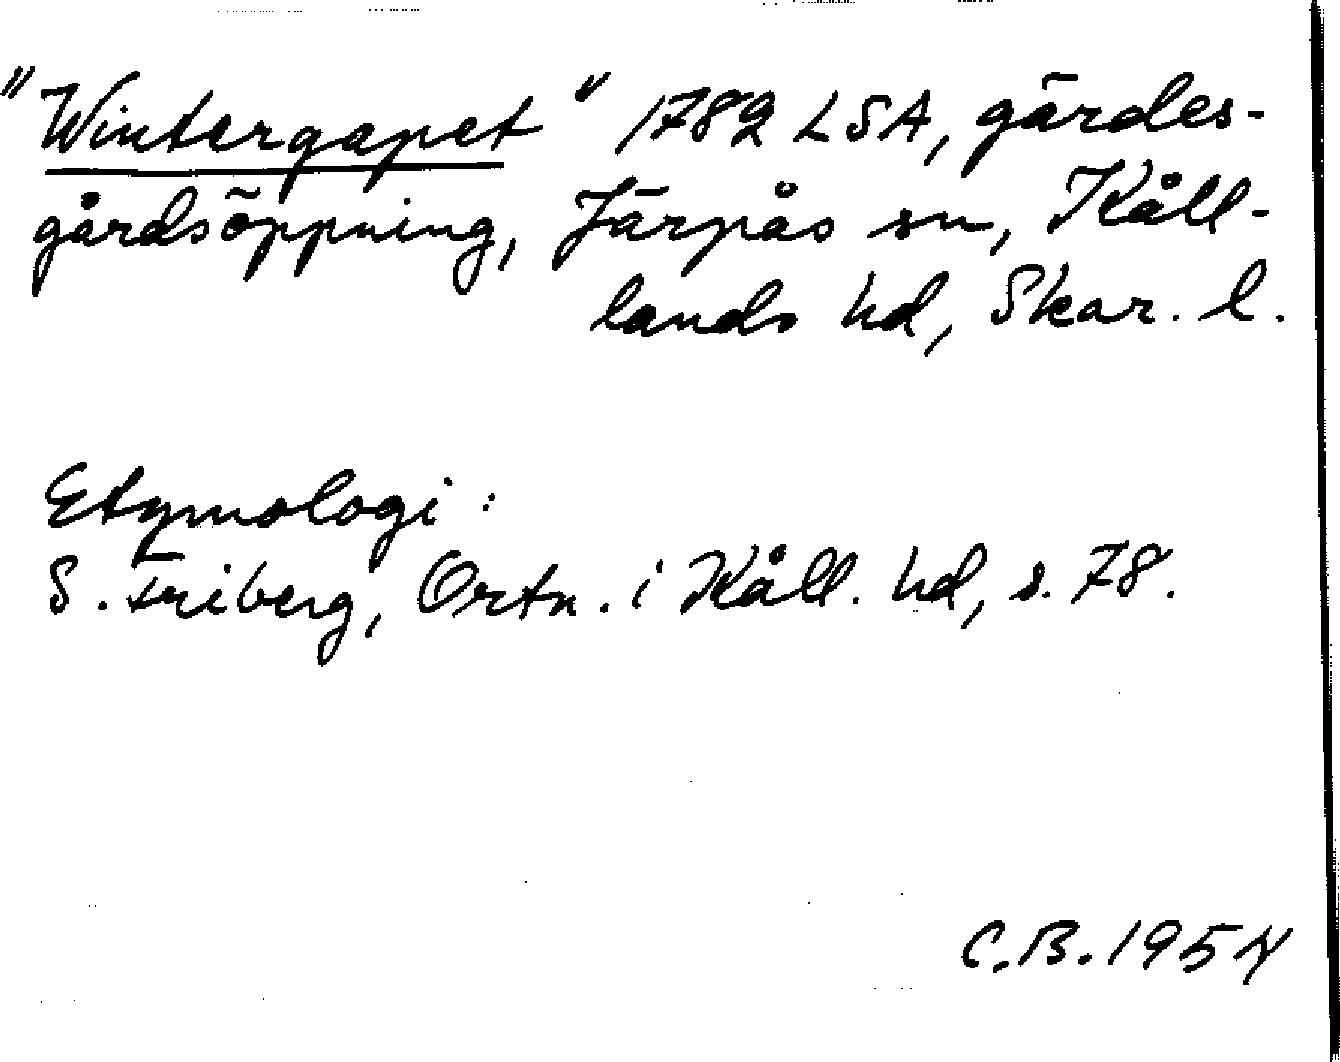 "Wintergapet" 1782 LSA, gärdes-
gårdsöppning, Järpås sn, Kåll-
lands hd, Skar. l.
Etymologi:
S. Friberg, Ortn. i Kåll. hd, s. 78.
C.B. 1954